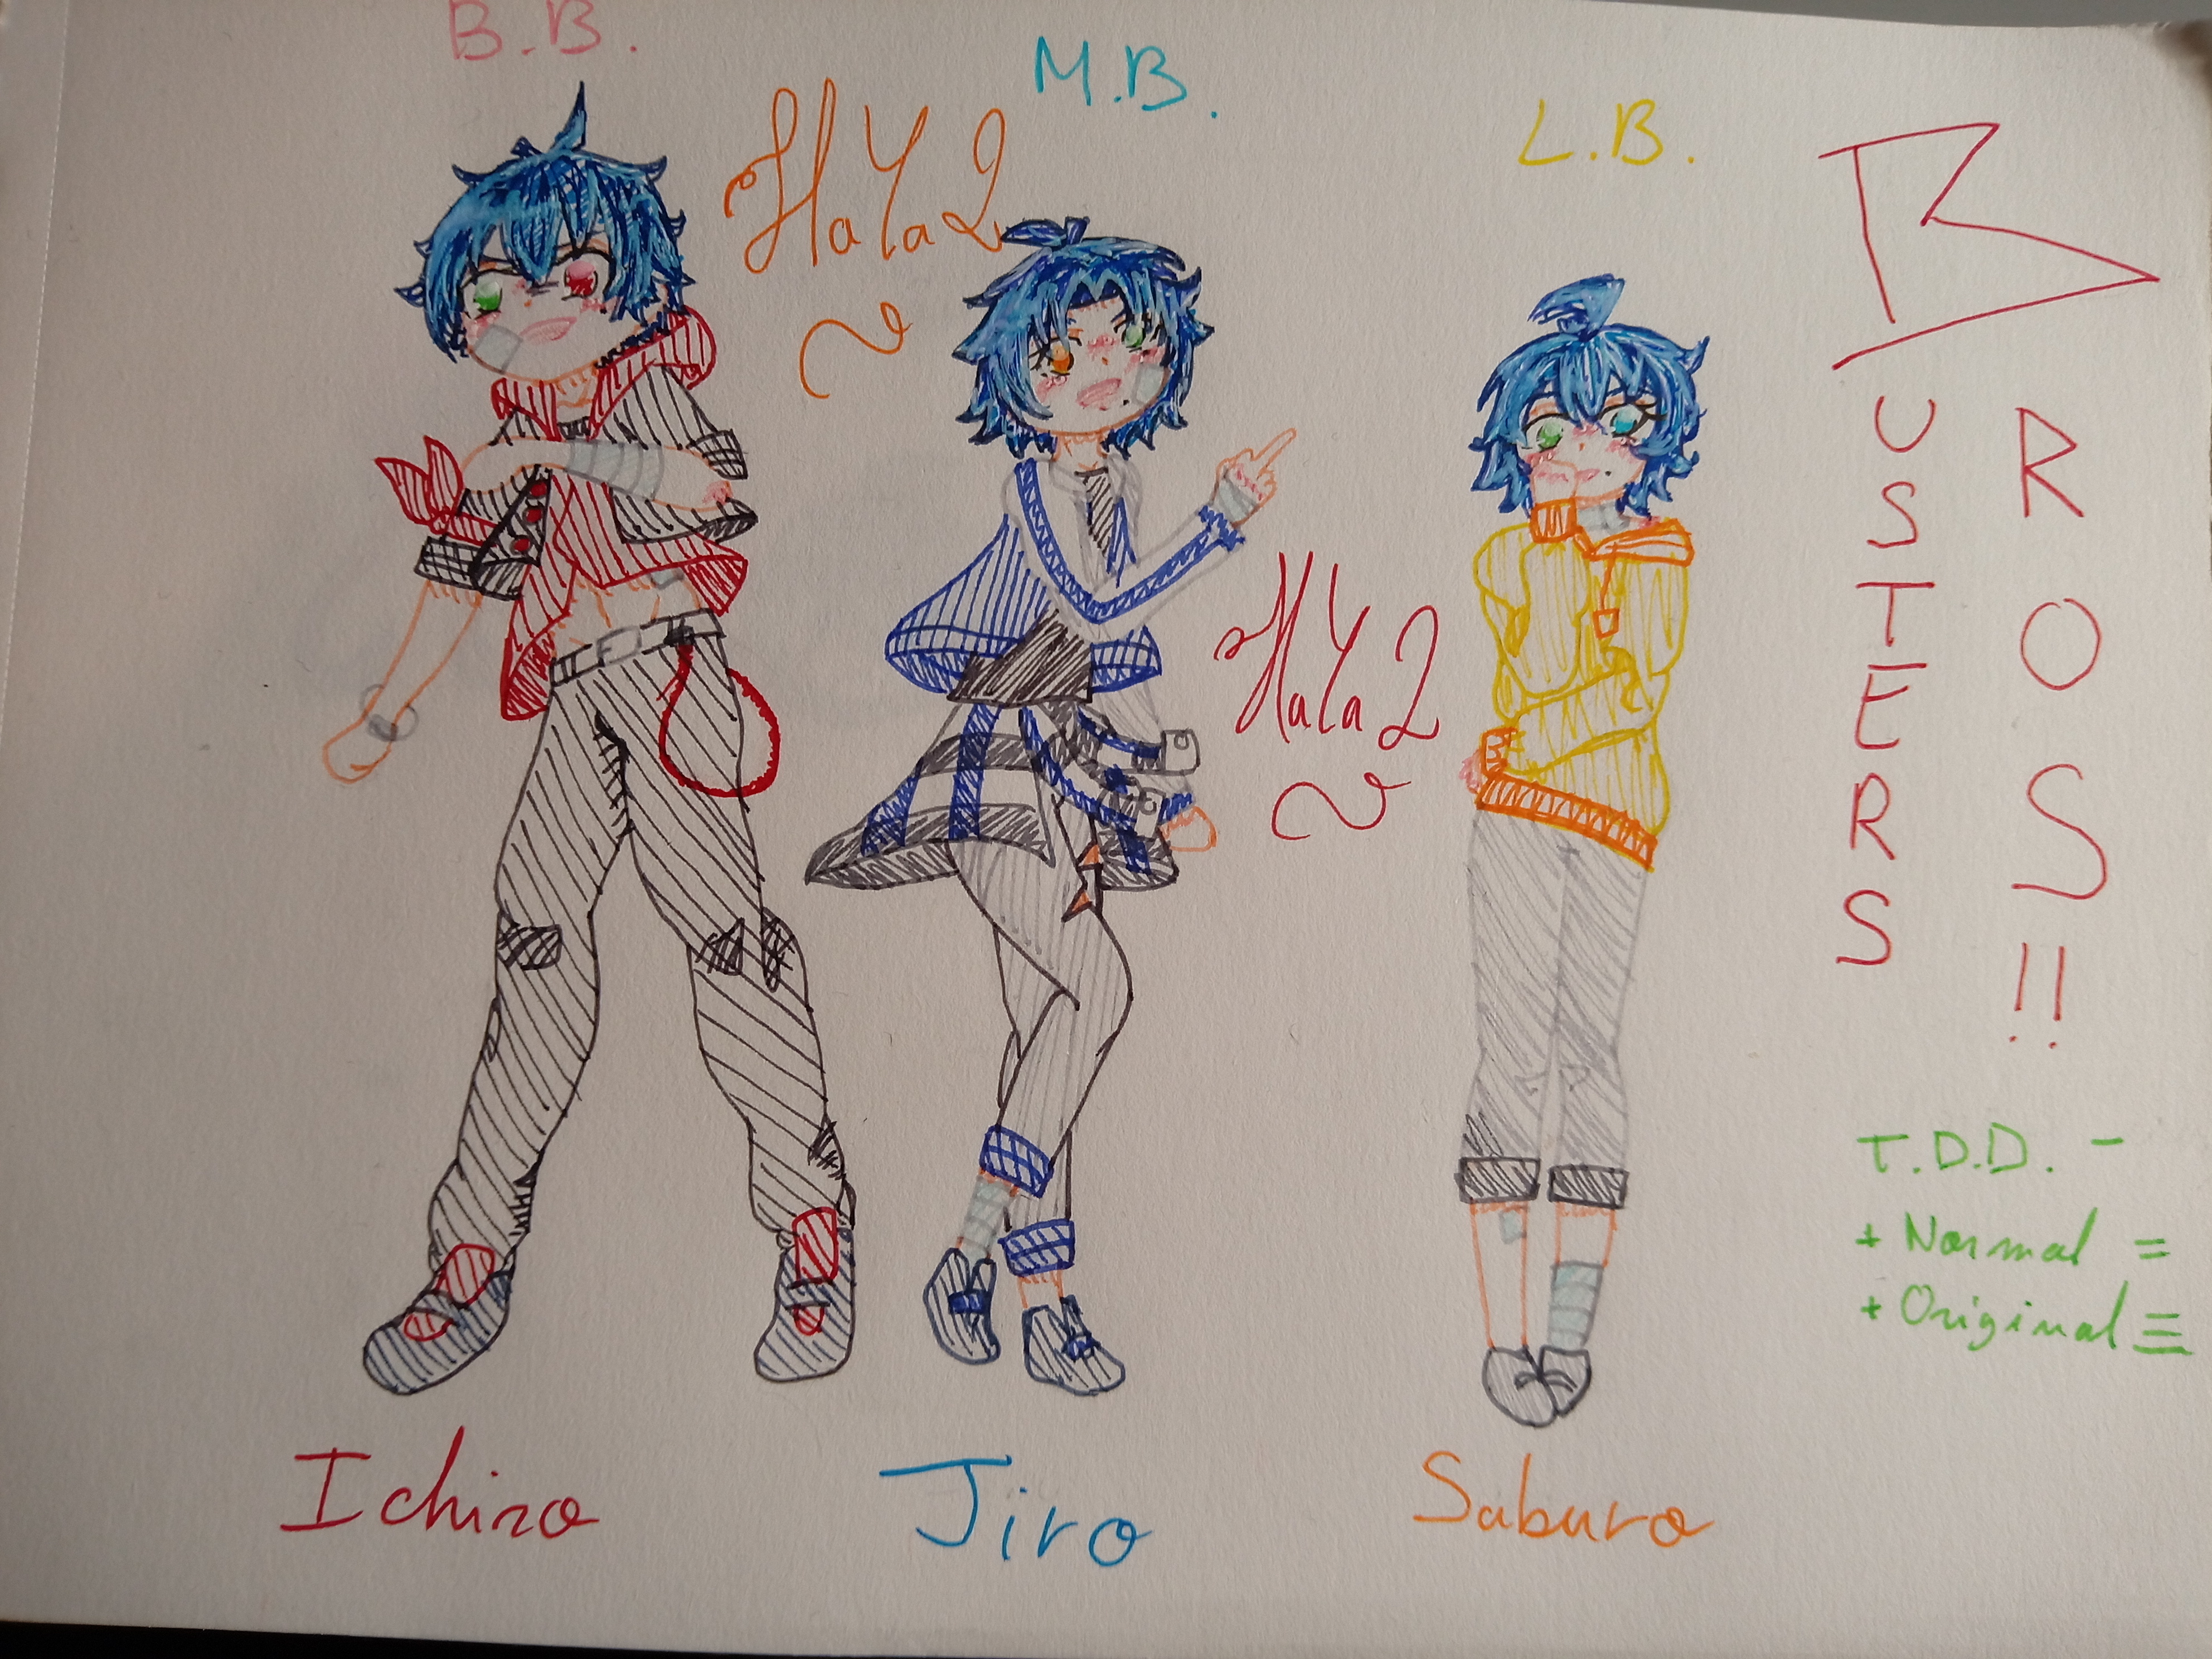 B.B.
M.B.
L.B.
HaYa2
HaYa2
BUSTERS
BROS!!
T.D.D. -
+ Normal =
+ Original ≡
Ichiro
Jiro
Saburo